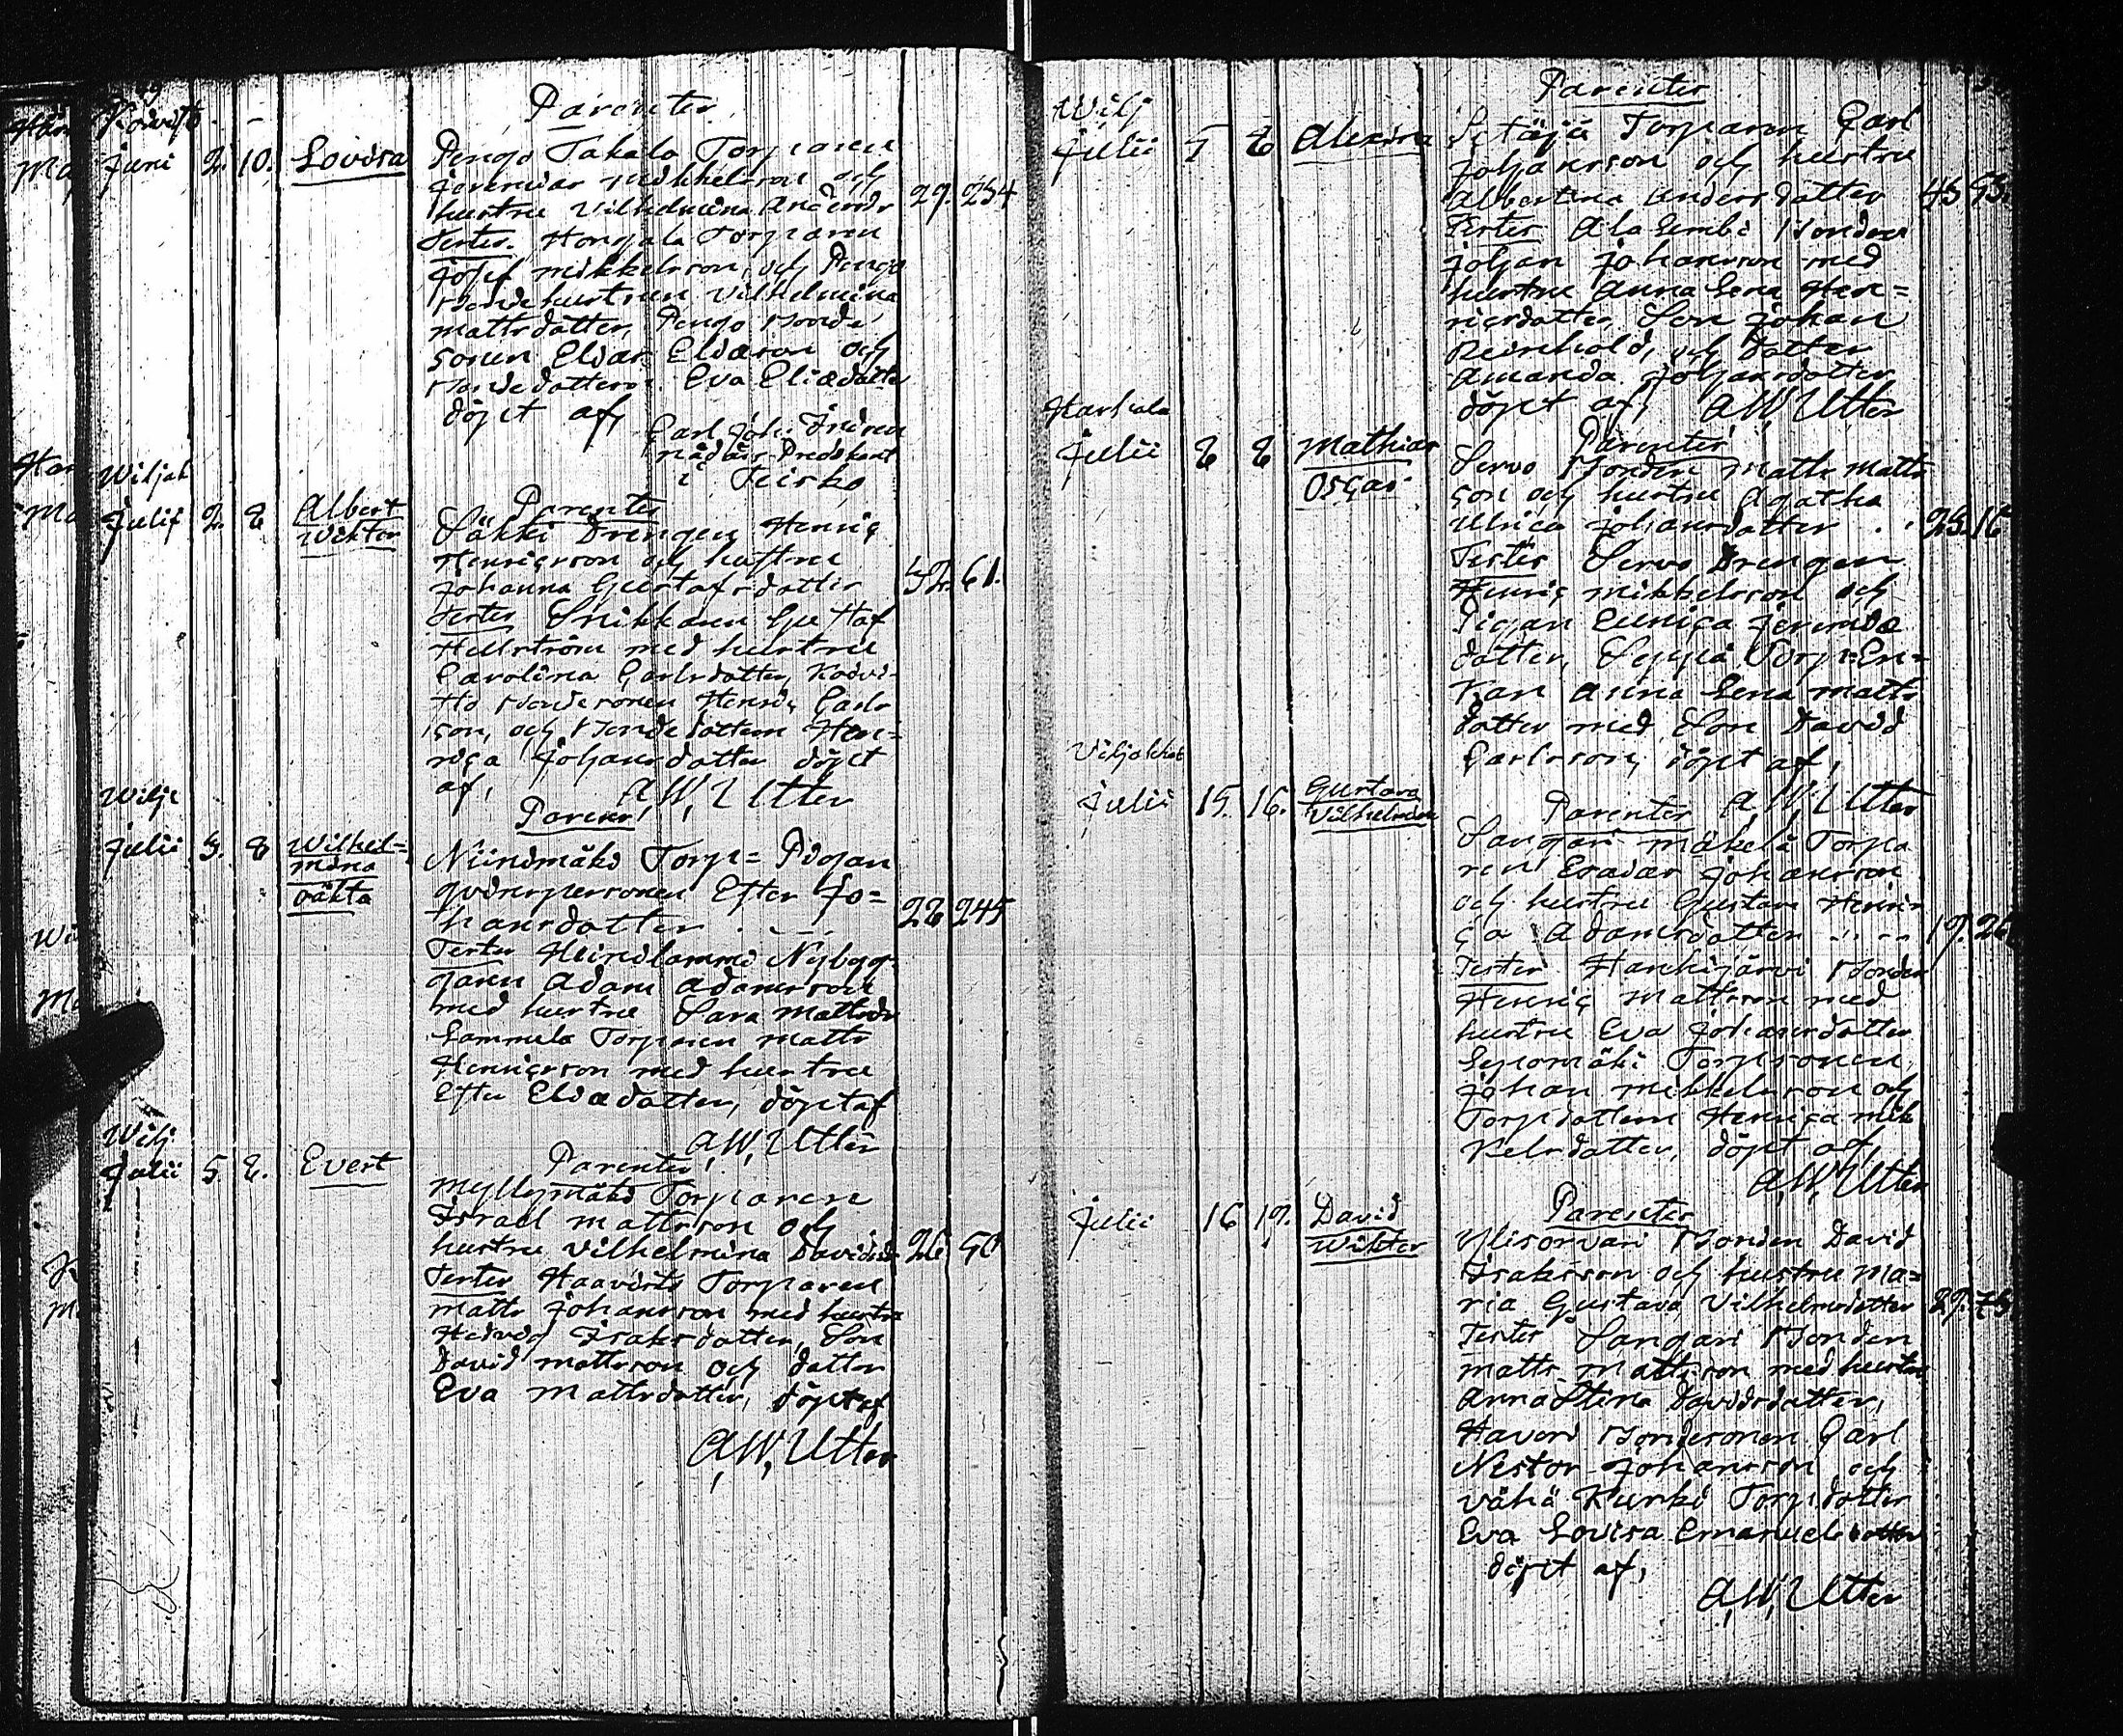 Parenter
Juni 2. 10. Lovisa
Pengo Takala Torparen
Jeremias Mikkelsson och
hustru Vilhelmina Andersdr 29. 254
Tester. Hongala Torparen
Josef Mikkelsson, och Pengo
Bondehustrun Vilhelmina
Mattsdotter, Pengo Bonde
sonen Elias Eliæson och
Bondedotteren Eva Eliædotter
döpt af,
Carl Joh:
nådårs Predikant
i Teisko
Wiljak
Julii 2. 8 Albert
Wikter
Parenter
Säkki Drengen Henric
Henricsson och hustru
Johanna Gustafsdotter 61.
Tester Snikkaren Gustaf
Hellström med hustru
Carolina Carlsdotter,
Bondesonen Henric Carls
son, och Bondedottern Hen=
rica Johansdotter döpt
af, A, W, Utter
Wilj
Julii 8 Wilhel=
mina
oäkta
Parens,
Niinimäki Torp= Pigan
qvinspersonen Ester Jo=
hansdotter 245
Tester Heinilammi Nybyg
garen Adam Adamsson
med hustru Sara Mattsdr
Sammula Torparen Matts
Henricsson med hustru
Ester Eliædotter, döpt af
A, W, Utter
Wilj
Julii 5 8. Evert
Parenter
Myllymäki Torparen
Israel Mattsson och
hustru Vilhelmina Davidsdr 26 50
Tester Haavisto Torparen
Matts Johansson med hustru
Hedvig Isaksdotter, Son
David Mattsson och dotter
Eva Mattsdotter, döpt af
A, W, Utter
Wilj
Julii 8 Alexdra
Parenter
Torparen Carl
Johansson och hustru
Albertina Andersdotter
Tester Ala Sembi Bonden
Johan Johansson med
hustru Anna Lena Hen=
ricsdotter, Son Johan
Reinhold, och dotter
Amanda Johansdotter
döpt af, A, W, Utter
Harhala
Julii 8 8 Mathias
Oscar
Parenter
Servo Bonden Matts Matts
son och hustru Agatha
Ulrica Johansdotter 16
Tester Servo Drengen
Henric Mikkelsson och
Pigan Eunica Jeremiæ
dotter, Seppä Torp=En=
kan Anna Lena Matts
dotter med Son David
Carlsson, döpt af,
A, W, Utter
Viljakkal
Julii 15. 16. Gustava
Vilhelmina
Parenter
Sangari Mäkelä Torpa
ren Esaias Johansson
och hustru Gustava Henri=
ca Adamsdotter 19. 26
Tester Hanhijärvi Bonden
Henric Mattsson med
hustru Eva Johansdotter
Torpsonen
Johan Mikkelsson och
Torpdottern Henrica Mik
kelsdotter, döpt af,
A, W, Utter
Julii 16 19. David
Wikter
Parenter
Ylisorvari Bonden David
Isaksson och hustru Ma=
ria Gustava Vilhelmsdotter
Tester Sangari Bonden
Matts Mattsson med hustru
Anna Stina Davidsdotter,
Haveri Bondesonen Carl
Nestor Johansson, och
Vähä Kurki Torpdotter
Eva Lovisa Emanuelsdotter
döpt af,
A, W, Utter